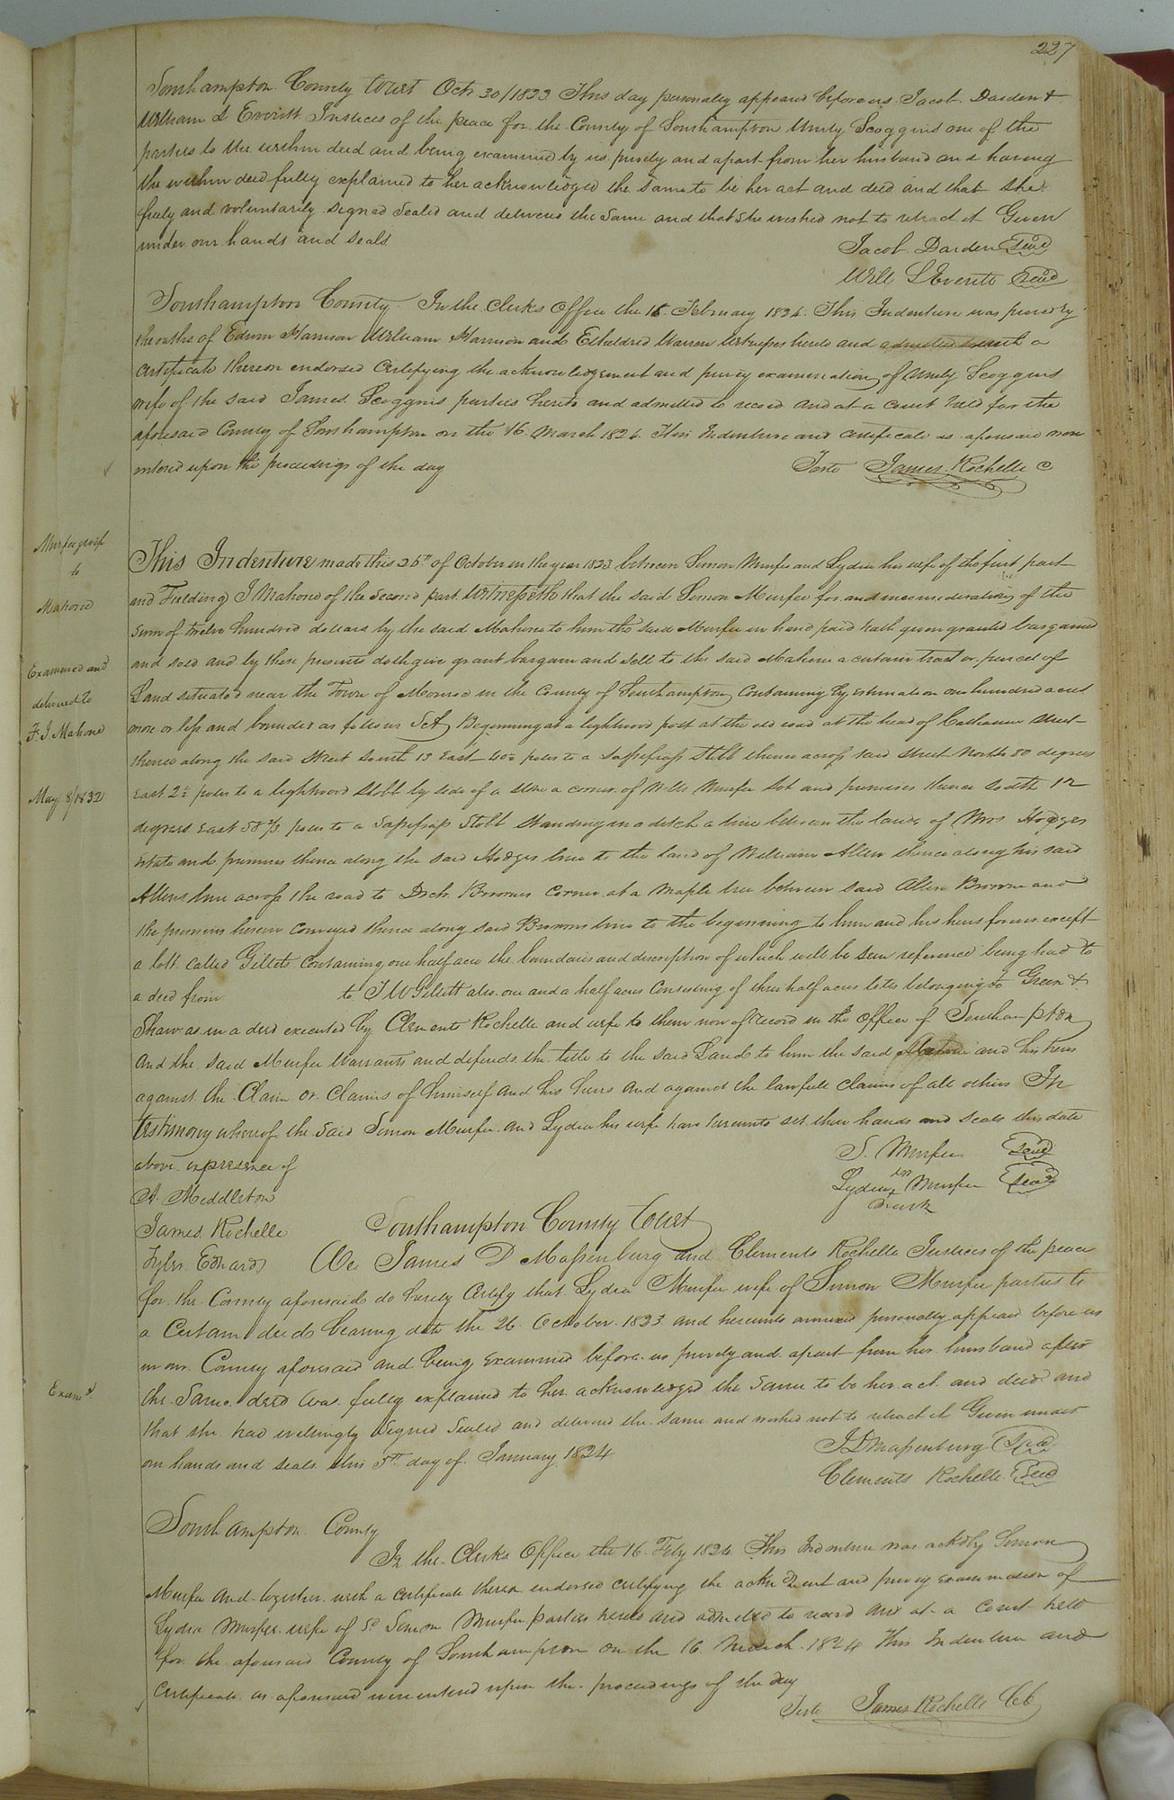 227
Southampton County Court Octr 30/1823 This day personally appeared before us Jacob Darden &
William L Everitt Justices of the peace for the County of Southampton Unity Scoggins one of the
parties to the within deed and being examined by us privily and apart from her husband and having
the within deed fully explained to her acknowledged the same to be her act and deed and that she
freely and voluntarily signed sealed and delivered the same and that she wished not to retract it Given
under our hands and seals
Jacob Darden Seal
Will L Everitt Seal
Southampton County In the Clerks Office the 16 February 1824. This Indenture was proved by
the oaths of Edwin Harrison William Harrison and Etheldred Warren Witnesses hereto and a
Certificate thereon endorsed Certifying the acknowledgement and privy examination of Unity Scoggins
wife of the said James Scoggins parties hereto and admitted to record and at a Court held for the
aforesaid County of Southampton on the 16 March 1824. This Indenture and Certificate as aforesaid were
entered upon the proceedings of the day
Teste James Rochelle C
Murfee & wife
to
Mahone
Examined and
delivered to
F. J. Mahone
May 8/1832
This Indenture made this 26th of October in the year 1823 between Simon Murfee and Lydia his wife of the first part
and Fielding J Mahone of the second part Witnesseth that the said Simon Murfee for and in consideration of the
sum of twelve hundred dollars by the said Mahone to him the said Murfee in hand paid hath given granted bargained
and sold and by these presents doth give grant bargain and sell to the said Mahone a certain tract or parcel of
Land situated near the Town of Monroe in the County of Southampton Containing by estimation one hundred acres
more or less and bounded as follows Sct Beginning at a lightwood post at the old road at the head of Catharine Street
thence along the said Street South 13 East 40½ poles to a Sassafrass Stobb thence across said Street North 80 degrees
East 2½ poles to a lightwood Stobb by side of a corner of Wills Murfee lot and premises thence South 12
degrees East 58⅔ poles to a Sassafrass Stobb Standing in a ditch a line between the lands of Mrs Hodges
estate and premises thence along the said Hodges line to the land of William Allen thence along his said
Allens line across the road to Drch Browns Corner at a Maple tree between said Allen Browne and
the premises herein Conveyed thence along said Browns line to the beginning to him and his heirs forever except
a lott called Gilletts Containing one half acre the boundaries and description of which will be seen reference being had to
a deed from to J W Gillett also one and a half acres Consisting of three half acres lotts belonging to Green &
Shaw as in a deed executed by Clements Rochelle and wife to them now of record in the Office of Southampton
And the said Murfee Warrants and defends the title to the said Land to him the said Mahone and his heirs
against the Claim or Claims of himself and his heirs and against the lawfull claims of all others In
testimony whereof the said Simon Murfee and Lydia his wife have hereunto set their hands and seals this date
above in presence of
S. Murfee Seal
A. Middleton
Lydia Murfee Seal
James Rochelle
Southampton County Court
Edwards We James D Massenburg and Clements Rochelle Justices of the peace
for the County aforesaid do hereby Certify that Lydia Murfee wife of Simon Murfee parties to
a Certain deed bearing date the 26 October 1823 and hereunto annexed personally appeared before us
in our County aforesaid and being examined before us privily and apart from her husband after
the same deed was fully explained to her acknowledged the same to be her act and deed and
that she had willingly signed sealed and delivered the same and wished not to retract it Given under
our hands and seals this 5th day of January 1824
Exam.d
J. D Massenburg Seal
Clements Rochelle Seal
Southampton County
In the Clerks Office the 16 Feby 1824 This Indenture was ackd by Simon
Murfee and together with a Certificate thereon endorsed certifying the and privy examination of
Lydia Murfee wife of sd Simon Murfee parties hereto and admitted to record and at a Court held
for the aforesaid County of Southampton on the 16 March 1824 This Indenture and
Certificate as aforesaid were entered upon the proceedings of the day
Teste James Rochelle CC